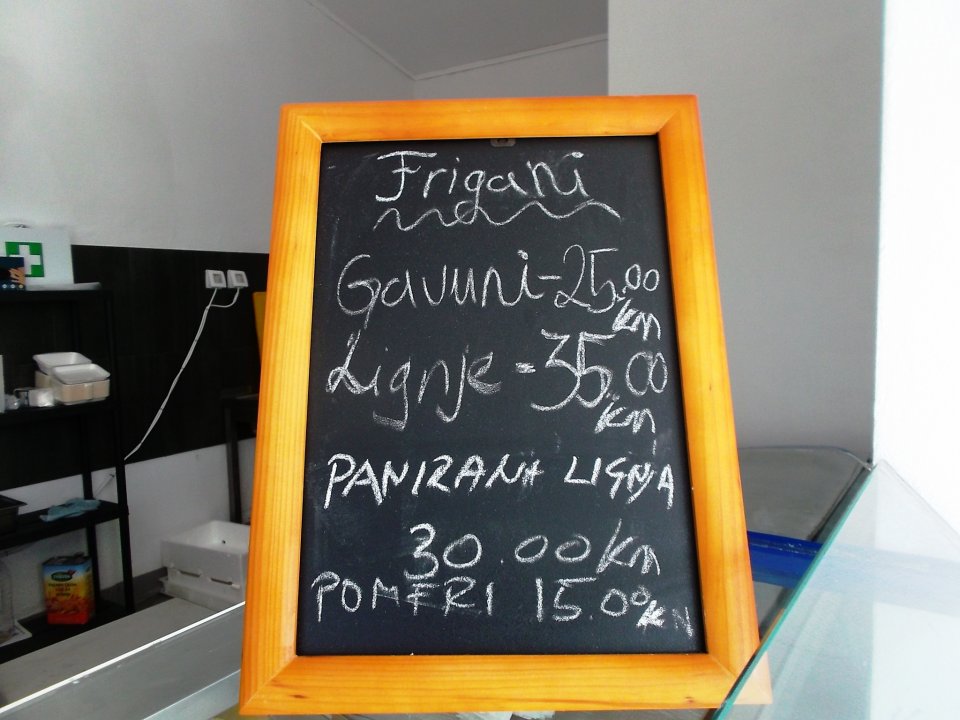 Frigani
Gavuni - 25,00
kn
Lignje - 35,00
kn
PANIRANA LIGNJA
30.00 kn
POMFRI 15.00 KN